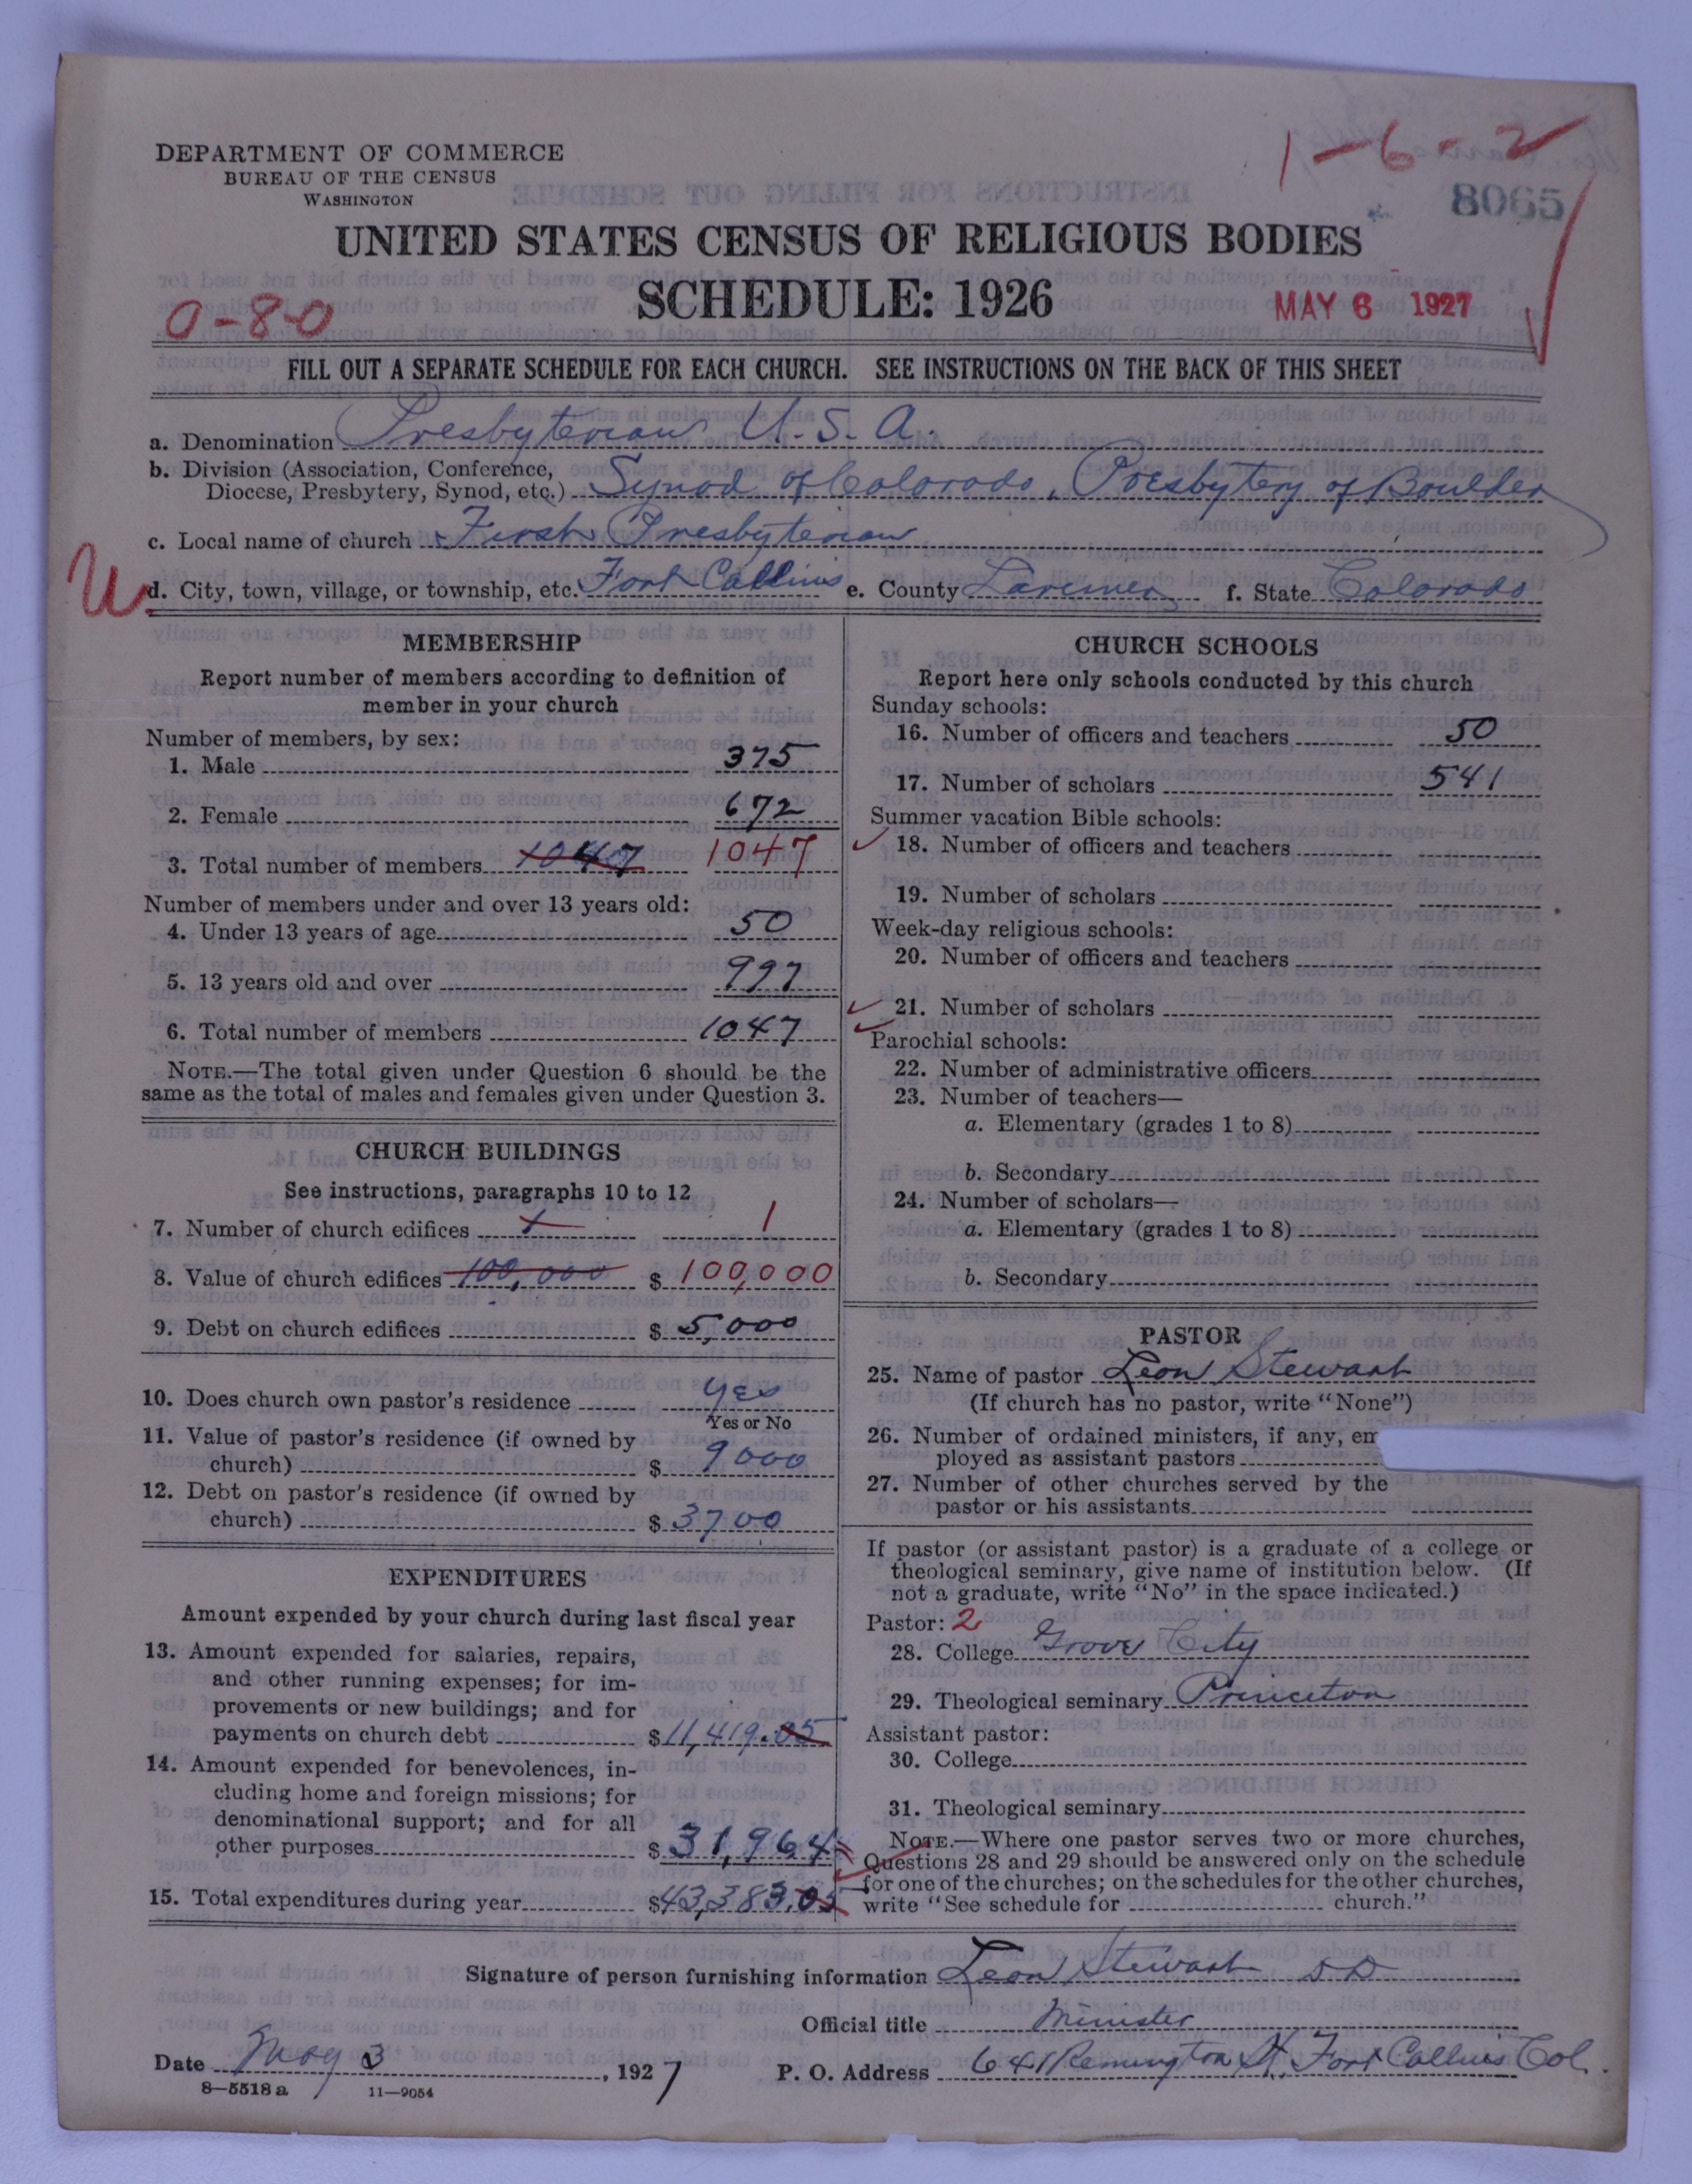 1-6-2
8065
DEPARTMENT OF COMMERCE
BUREAU OF THE CENSUS
WASHINGTON
UNITED STATES CENSUS OF RELIGIOUS BODIES
SCHEDULE: 1926
0-8-0
MAY 6 1927
FILL OUT A SEPARATE SCHEDULE FOR EACH CHURCH. SEE INSTRUCTIONS ON THE BACK OF THIS SHEET
a. Denomination Presbyterian U.S.A.
b. Division (Association, Conference,
Diocese, Presbytery, Synod, etc.) Synod of Colorado, Presbytery of Boulder
c. Local name of church First Presbyterian
U
d. City, town, village, or township, etc. Fort Collins e. County Larimer f. State Colorado
MEMBERSHIP
Report number of members according to definition of
member in your church
Number of members, by sex:
1. Male 375
2. Female 672
3. Total number of members 1047 1047
Number of members under and over 13 years old:
4. Under 13 years of age 50
5. 13 years old and over 997
6. Total number of members 1047
NOTE.—The total given under Question 6 should be the
same as the total of males and females given under Question 3.
CHURCH BUILDINGS
See instructions, paragraphs 10 to 12
7. Number of church edifices 1 1
8. Value of church edifices 100,000 $ 100,000
9. Debt on church edifices $ 5,000
10. Does church own pastor's residence Yes
Yes or No
11. Value of pastor's residence (if owned by
church) $ 9000
12. Debt on pastor's residence (if owned by
church) $ 3700
EXPENDITURES
Amount expended by your church during last fiscal year
13. Amount expended for salaries, repairs,
and other running expenses; for im-
provements or new buildings; and for
payments on church debt $ 11,419.05
14. Amount expended for benevolences, in-
cluding home and foreign missions; for
denominational support; and for all
other purposes $ 31,964
15. Total expenditures during year $ 43,383.05
CHURCH SCHOOLS
Report here only schools conducted by this church
Sunday schools:
16. Number of officers and teachers 50
17. Number of scholars 541
Summer vacation Bible schools:
18. Number of officers and teachers
19. Number of scholars
Week-day religious schools:
20. Number of officers and teachers
21. Number of scholars
Parochial schools:
22. Number of administrative officers
23. Number of teachers—
a. Elementary (grades 1 to 8)
b. Secondary
24. Number of scholars—
a. Elementary (grades 1 to 8)
b. Secondary
PASTOR
25. Name of pastor Leon Stewart
(If church has no pastor, write "None")
26. Number of ordained ministers, if any, em
ployed as assistant pastors
27. Number of other churches served by the
pastor or his assistants
If pastor (or assistant pastor) is a graduate of a college or
theological seminary, give name of institution below. (If
not a graduate, write "No" in the space indicated.)
Pastor: 2
28. College Grove City
29. Theological seminary Princeton
Assistant pastor:
30. College
31. Theological seminary
NOTE.—Where one pastor serves two or more churches,
Questions 28 and 29 should be answered only on the schedule
for one of the churches; on the schedules for the other churches,
write "See schedule for church."
Signature of person furnishing information Leon Stewart DD
Official title Minister
Date May 3, 1927 P. O. Address 641 Remington St. Fort Collins Col.
8—5518 a 11—9054